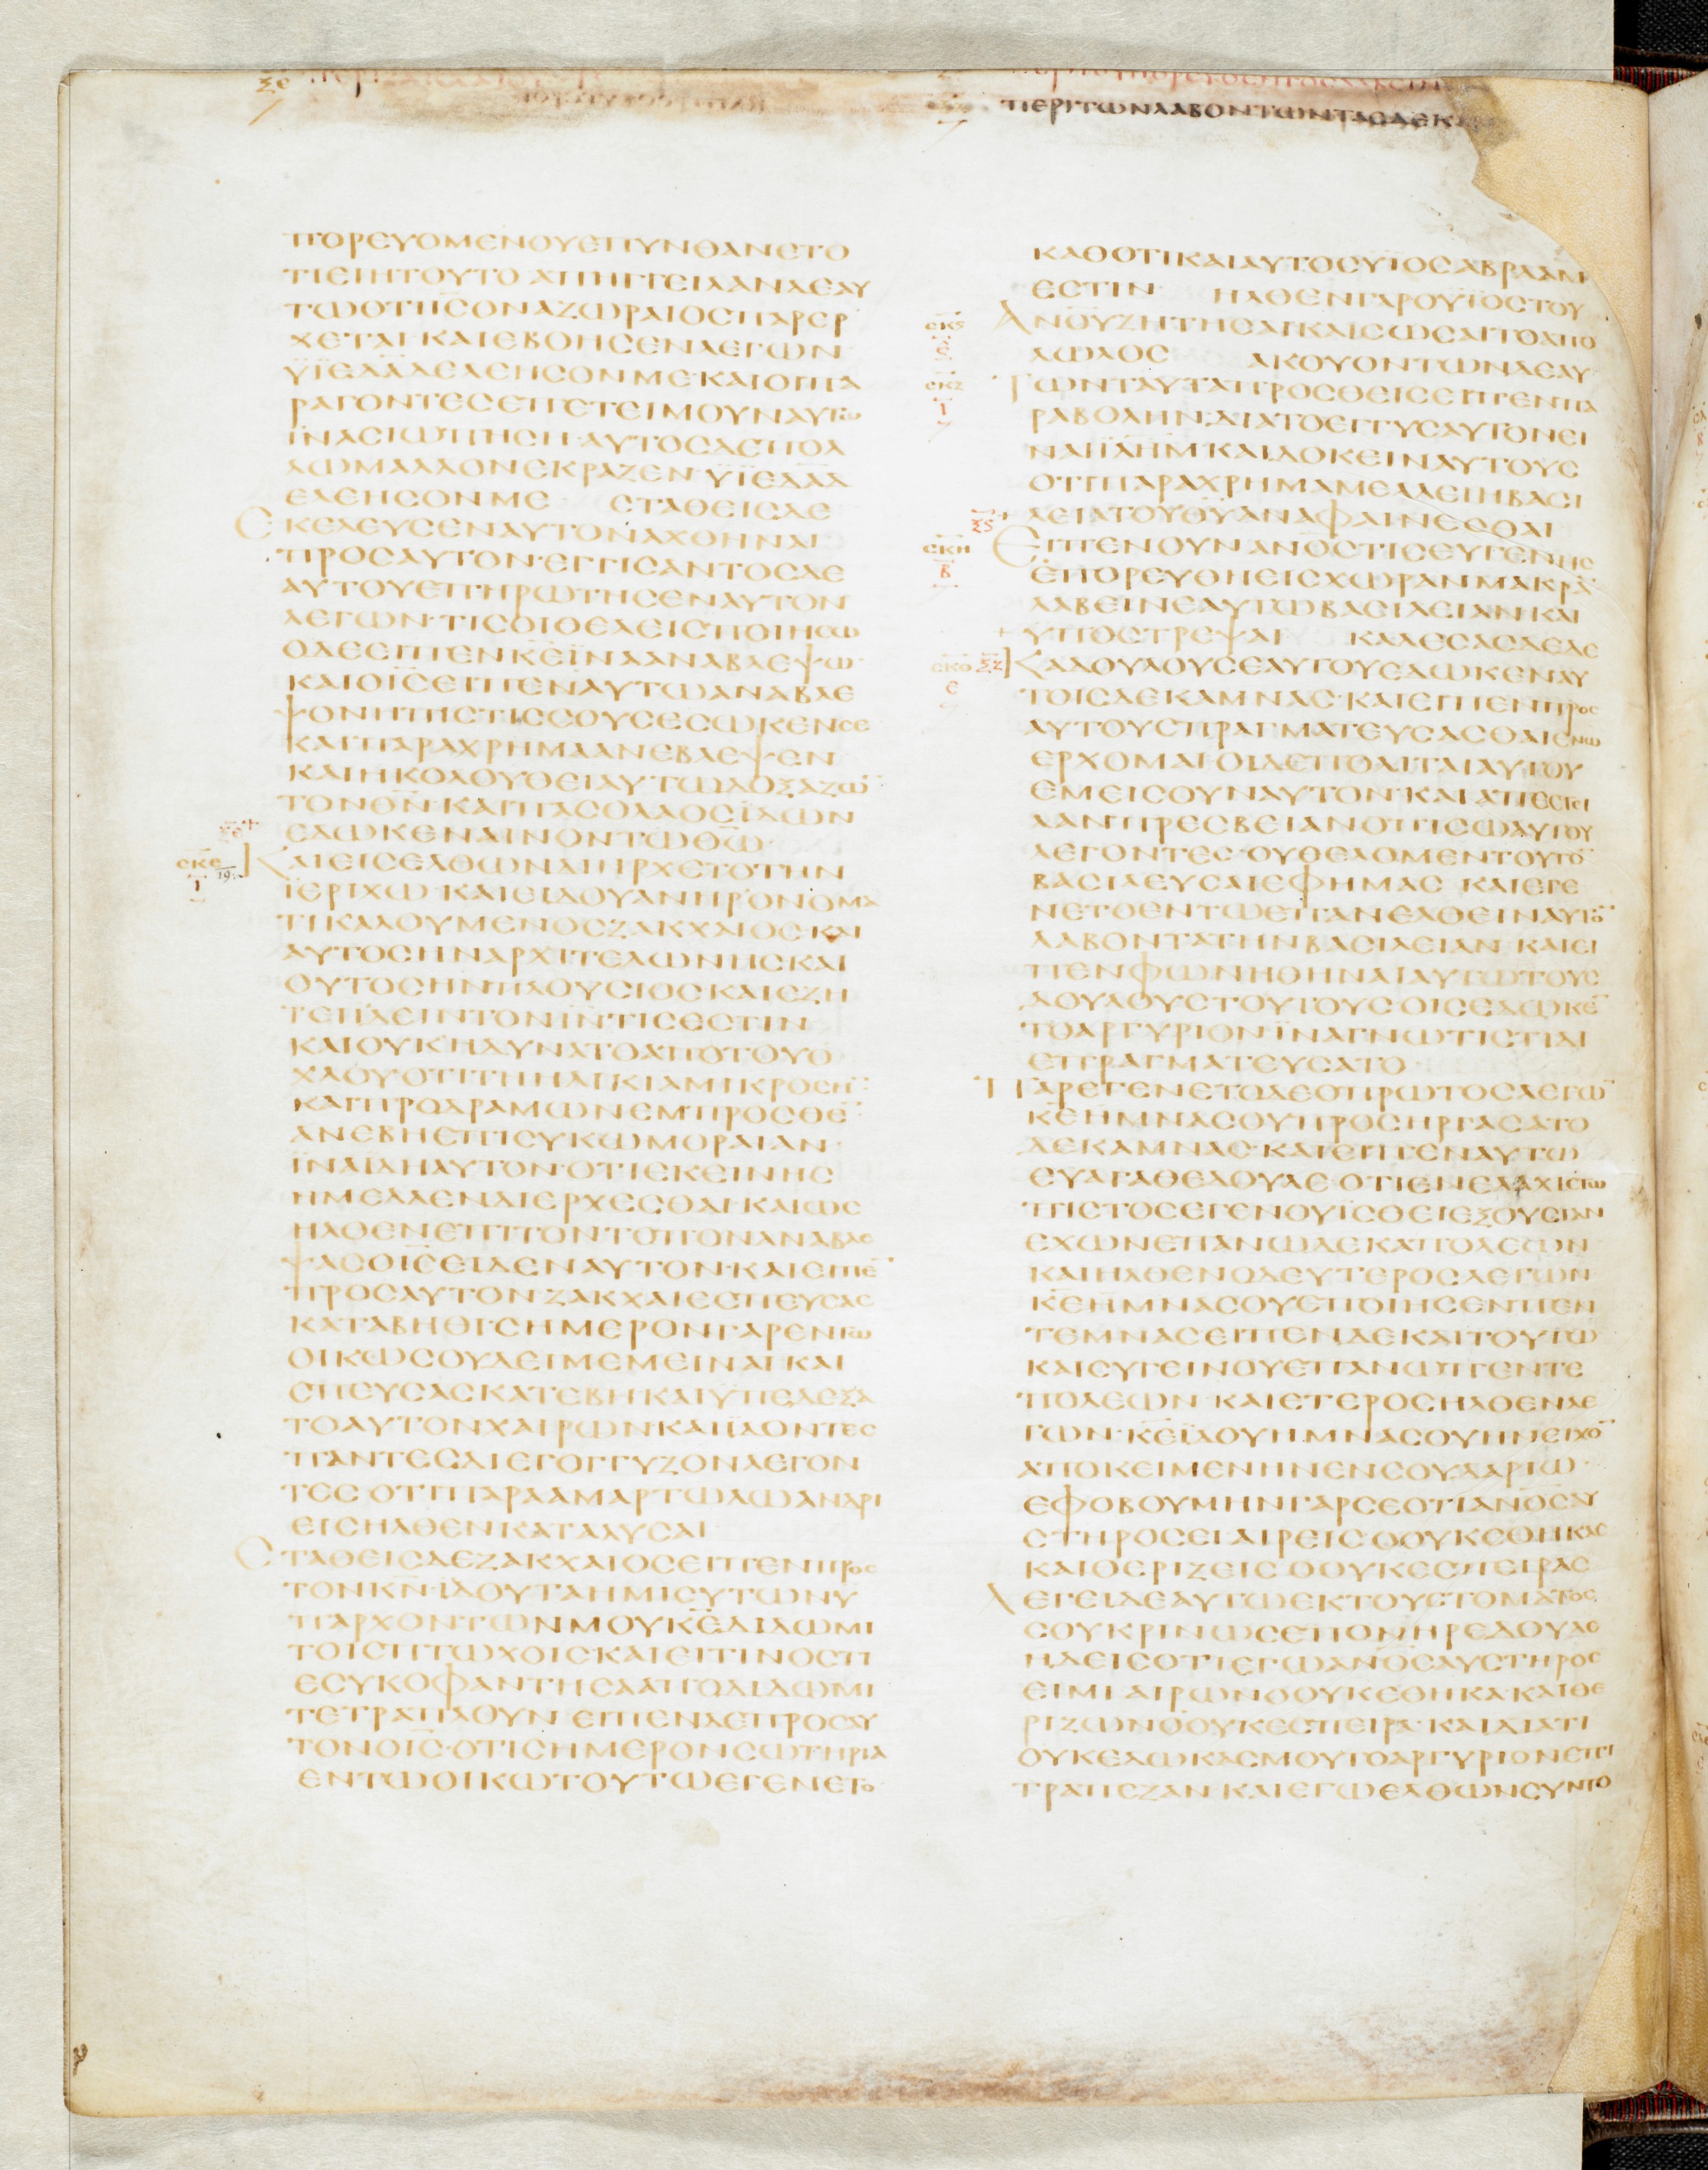 ξε
ΠΕΡΙΤΩΝΛΑΒΟΝΤΩΝΤΑϹΔΕΚΑ
ΠΟΡΕΥΟΜΕΝΟΥΕΠΥΝΘΑΝΕΤΟ
ΤΙΕΙΗΤΟΥΤΟ ΑΠΗΓΓΕΙΛΑΝΔΕΑΥ
ΤΩΟΤΙΙ̅Ϲ̅ΟΝΑΖΩΡΑΙΟϹΠΑΡΕΡ
ΧΕΤΑΙ·ΚΑΙΕΒΟΗϹΕΝΛΕΓΩΝ
ΥΪΕΔ̅Α̅Δ̅ΕΛΕΗϹΟΝΜΕ·ΚΑΙΟΙΠΑ
ΡΑΓΟΝΤΕϹΕΠΕΤΕΙΜΟΥΝΑΥΤΩ
ΪΝΑϹΙΩΠΗϹΗ·ΑΥΤΟϹΔΕΠΟΛ
ΛΩΜΑΛΛΟΝΕΚΡΑΖΕΝ·ΥΪΕΔ̅Α̅Δ̅
ΕΛΕΗϹΟΝΜΕ ϹΤΑΘΕΙϹΔΕ
ΕΚΕΛΕΥϹΕΝΑΥΤΟΝΑΧΘΗΝΑΙ
ΠΡΟϹΑΥΤΟΝ·ΕΓΓΙϹΑΝΤΟϹΔΕ
ΑΥΤΟΥΕΠΗΡΩΤΗϹΕΝΑΥΤΟΝ
ΛΕΓΩΝ·ΤΙϹΟΙΘΕΛΕΙϹΠΟΙΗϹΩ
ΟΔΕΕΙΠΕΝΚ̅Ε̅ΪΝΑΑΝΑΒΛΕΨΩ·
ΚΑΙΟΙ̅Ϲ̅ΕΙΠΕΝΑΥΤΩΑΝΑΒΛΕ
ΨΟΝΗΠΙϹΤΙϹϹΟΥϹΕϹΩΚΕΝϹΕ
ΚΑΙΠΑΡΑΧΡΗΜΑΑΝΕΒΛΕΨΕΝ
ΚΑΙΗΚΟΛΟΥΘΕΙΑΥΤΩΔΟΞΑΖΩ̅
ΤΟΝΘ̅Ν̅·ΚΑΙΠΑϹΟΛΑΟϹΪΔΩΝ
ΕΔΩΚΕΝΑΙΝΟΝΤΩΘ̅Ω̅·
ξε
ϲκε
ι
19
ΚΑΙΕΙϹΕΛΘΩΝΔΙΗΡΧΕΤΟΤΗΝ
ΪΕΡΙΧΩ·ΚΑΙΕΙΔΟΥΑΝΗΡΟΝΟΜΑ
ΤΙΚΑΛΟΥΜΕΝΟϹΖΑΚΧΑΙΟϹ·ΚΑΙ
ΑΥΤΟϹΗΝΑΡΧΙΤΕΛΩΝΗϹΚΑΙ
ΟΥΤΟϹΗΝΠΛΟΥϹΙΟϹΚΑΙΕΖΗ
ΤΕΙΪΔΕΙΝΤΟΝΙ̅Ν̅ΤΙϹΕϹΤΙΝ
ΚΑΙΟΥΚΗΔΥΝΑΤΟΑΠΟΤΟΥΟ
ΧΛΟΥΟΤΙΤΗΗΛΙΚΙΑΜΙΚΡΟϹΗ̅
ΚΑΙΠΡΟΔΡΑΜΩΝΕΜΠΡΟϹΘΕ̅
ΑΝΕΒΗΕΠΙϹΥΚΩΜΟΡΑΙΑΝ·
ΪΝΑΪΔΗΑΥΤΟΝ·ΟΤΙΕΚΕΙΝΗϹ
ΗΜΕΛΛΕΝΔΙΕΡΧΕϹΘΑΙ·ΚΑΙΩϹ
ΗΛΘΕΝΕΠΙΤΟΝΤΟΠΟΝΑΝΑΒΛΕ
ΨΑϹΟΙ̅Ϲ̅ΕΙΔΕΝΑΥΤΟΝ·ΚΑΙΕΙΠΕ̅
ΠΡΟϹΑΥΤΟΝ·ΖΑΚΧΑΙΕϹΠΕΥϹΑϹ
ΚΑΤΑΒΗΘΙ·ϹΗΜΕΡΟΝΓΑΡΕΝΤΩ
ΟΙΚΩϹΟΥΔΕΙΜΕΜΕΙΝΑΙ·ΚΑΙ
ϹΠΕΥϹΑϹΚΑΤΕΒΗ·ΚΑΙΫΠΕΔΕΞΑ
ΤΟΑΥΤΟΝΧΑΙΡΩΝ·ΚΑΙΪΔΟΝΤΕϹ
ΠΑΝΤΕϹΔΙΕΓΟΓΓΥΖΟΝΛΕΓΟΝ
ΤΕϹ·ΟΤΙΠΑΡΑΑΜΑΡΤΩΛΩΑΝΔΡΙ
ΕΙϹΗΛΘΕΝΚΑΤΑΛΥϹΑΙ
ϹΤΑΘΕΙϹΔΕΖΑΚΧΑΙΟϹΕΙΠΕΝΠΡΟϹ
ΤΟΝΚ̅Ν̅·ΪΔΟΥΤΑΗΜΙϹΥΤΩΝΥ
ΠΑΡΧΟΝΤΩΝΜΟΥΚ̅Ε̅ΔΙΔΩΜΙ
ΤΟΙϹΠΤΩΧΟΙϹΚΑΙΕΙΤΙΝΟϹΤΙ
ΕϹΥΚΟΦΑΝΤΗϹΑΑΠΟΔΙΔΩΜΙ
ΤΕΤΡΑΠΛΟΥΝ ΕΙΠΕΝΔΕΠΡΟϹΑΥ
ΤΟΝΟΙ̅Ϲ̅·ΟΤΙϹΗΜΕΡΟΝϹΩΤΗΡΙΑ
ΕΝΤΩΟΙΚΩΤΟΥΤΩΕΓΕΝΕΤΟ
ΚΑΘΟΤΙΚΑΙΑΥΤΟϹΥΪΟϹΑΒΡΑΑΜ
ΕϹΤΙΝ ΗΛΘΕΝΓΑΡΟΥΪΟϹΤΟΥ
ϲκϛ
ΑΝ̅Ο̅Υ̅ΖΗΤΗϹΑΙΚΑΙϹΩϹΑΙΤΟΑΠΟ
ΛΩΛΟϹ ΑΚΟΥΟΝΤΩΝΔΕΑΥ
ϲκζ
ι
ΤΩΝΤΑΥΤΑΠΡΟϹΘΕΙϹΕΙΠΕΝΠΑ
ΡΑΒΟΛΗΝ·ΔΙΑΤΟΕΓΓΥϹΑΥΤΟΝΕΙ
ΝΑΙΪ̅Λ̅Η̅Μ̅·ΚΑΙΔΟΚΕΙΝΑΥΤΟΥϹ
ΟΤΙΠΑΡΑΧΡΗΜΑΜΕΛΛΕΙΗΒΑϹΙ
ΛΕΙΑΤΟΥΘ̅Υ̅ΑΝΑΦΑΙΝΕϹΘΑΙ
ξϛ
ϲκη
β
ΕΙΠΕΝΟΥΝ·ΑΝ̅Ο̅Ϲ̅ΤΙϹΕΥΓΕΝΗϹ
ΕΠΟΡΕΥΘΗΕΙϹΧΩΡΑΝΜΑΚΡΑ̅
ΛΑΒΕΙΝΕΑΥΤΩΒΑϹΙΛΕΙΑΝΚΑΙ
ΥΠΟϹΤΡΕΨΑΙ ΚΑΛΕϹΑϹΔΕΔΕ
ϲκθ
ξζ
ΚΑΔΟΥΛΟΥϹΕΑΥΤΟΥΕΔΩΚΕΝΑΥ
ΤΟΙϹΔΕΚΑΜΝΑϹ·ΚΑΙΕΙΠΕΝΠΡΟϹ
ΑΥΤΟΥϹΠΡΑΓΜΑΤΕΥϹΑϹΘΑΙΕΝΩ
ΕΡΧΟΜΑΙ·ΟΙΔΕΠΟΛΙΤΑΙΑΥΤΟΥ
ΕΜΕΙϹΟΥΝΑΥΤΟΝ·ΚΑΙΑΠΕϹΤΕΙ
ΛΑΝΠΡΕϹΒΕΙΑΝΟΠΙϹΩΑΥΤΟΥ
ΛΕΓΟΝΤΕϹ·ΟΥΘΕΛΟΜΕΝΤΟΥΤΟ̅
ΒΑϹΙΛΕΥϹΑΙΕΦΗΜΑϹ ΚΑΙΕΓΕ
ΝΕΤΟΕΝΤΩΕΠΑΝΕΛΘΕΙΝΑΥΤΟ̅
ΛΑΒΟΝΤΑΤΗΝΒΑϹΙΛΕΙΑΝ·ΚΑΙΕΙ
ΠΕΝΦΩΝΗΘΗΝΑΙΑΥΤΩΤΟΥϹ
ΔΟΥΛΟΥϹΤΟΥΤΟΥϹΟΙϹΕΔΩΚΕ̅
ΤΟΑΡΓΥΡΙΟΝΪΝΑΓΝΩΤΙϹΤΙΔΙ
ΕΠΡΑΓΜΑΤΕΥϹΑΤΟ
ΠΑΡΕΓΕΝΕΤΟΔΕΟΠΡΩΤΟϹΛΕΓΩ̅
Κ̅Ε̅ΗΜΝΑϹΟΥΠΡΟϹΗΡΓΑϹΑΤΟ
ΔΕΚΑΜΝΑϹ·ΚΑΙΕΙΠΕΝΑΥΤΩ
ΕΥΑΓΑΘΕΔΟΥΛΕ·ΟΤΙΕΝΕΛΑΧΙϹΤΩ
ΠΙϹΤΟϹΕΓΕΝΟΥΪϹΘΕΙΕΞΟΥϹΙΑΝ
ΕΧΩΝΕΠΑΝΩΔΕΚΑΠΟΛΕΩΝ
ΚΑΙΗΛΘΕΝΟΔΕΥΤΕΡΟϹΛΕΓΩΝ
Κ̅Ε̅ΗΜΝΑϹΟΥΕΠΟΙΗϹΕΝΠΕΝ
ΤΕΜΝΑϹΕΙΠΕΝΔΕΚΑΙΤΟΥΤΩ
ΚΑΙϹΥΓΕΙΝΟΥΕΠΑΝΩΠΕΝΤΕ
ΠΟΛΕΩΝ·ΚΑΙΕΤΕΡΟϹΗΛΘΕΝΛΕ
ΓΩΝ·Κ̅Ε̅ΪΔΟΥΗΜΝΑϹΟΥΗΝΕΙΧΟ̅
ΑΠΟΚΕΙΜΕΝΗΝΕΝϹΟΥΔΑΡΙΩ·
ΕΦΟΒΟΥΜΗΝΓΑΡϹΕΟΤΙΑΝ̅Ο̅Ϲ̅ΑΥ
ϹΤΗΡΟϹΕΙΑΙΡΕΙϹΟΟΥΚΕΘΗΚΑϹ
ΚΑΙΘΕΡΙΖΕΙϹΟΟΥΚΕϹΠΕΙΡΑϹ
ΛΕΓΕΙΔΕΑΥΤΩΕΚΤΟΥϹΤΟΜΑΤΟϹ
ϹΟΥΚΡΙΝΩϹΕΠΟΝΗΡΕΔΟΥΛΕ
ΗΔΕΙϹΟΤΙΕΓΩΑΝ̅Ο̅Ϲ̅ΑΥϹΤΗΡΟϹ
ΕΙΜΙ·ΑΙΡΩΝΟΟΥΚΕΘΗΚΑ·ΚΑΙΘΕ
ΡΙΖΩΝΟΟΥΚΕϹΠΕΙΡΑ·ΚΑΙΔΙΑΤΙ
ΟΥΚΕΔΩΚΑϹΜΟΥΤΟΑΡΓΥΡΙΟΝΕΠΙ
ΤΡΑΠΕΖΑΝ·ΚΑΙΕΓΩΕΛΘΩΝϹΥΝΤΟ